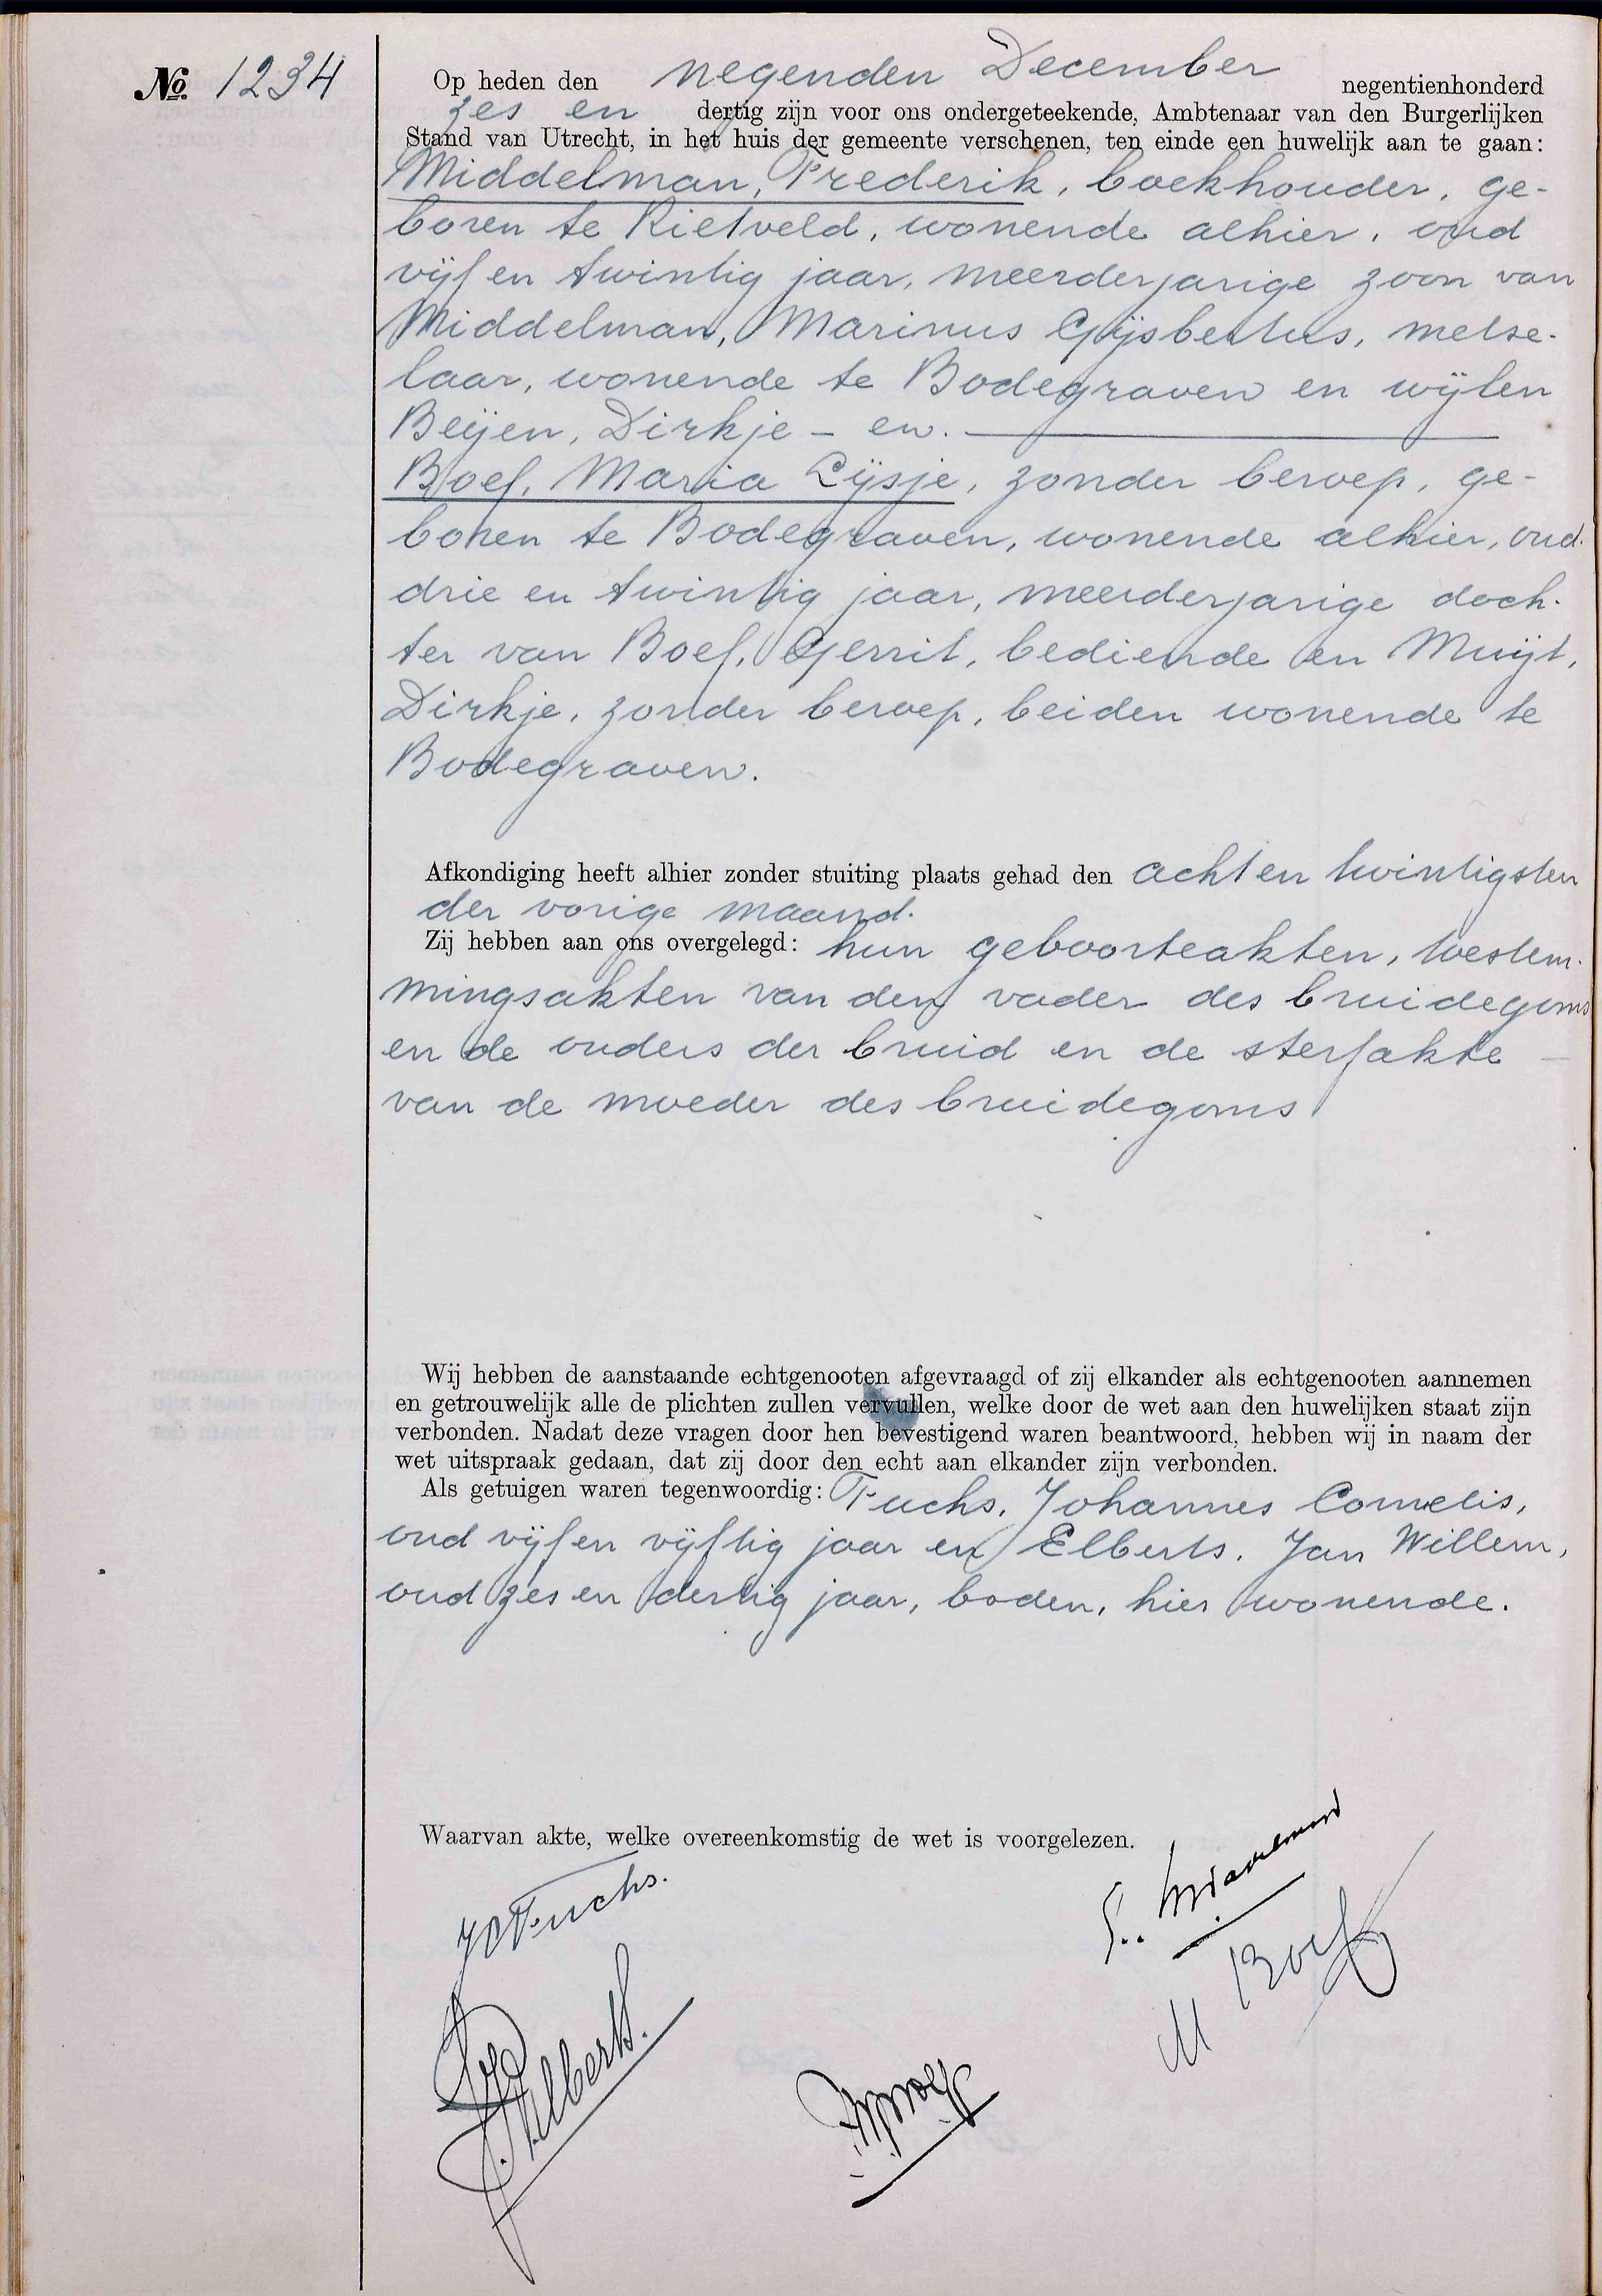 No. 1234
Op heden den negenden December negentienhonderd
zes en dertig zijn voor ons ondergeteekende, Ambtenaar van den Burgerlijken
Stand van Utrecht, in het huis der gemeente verschenen, ten einde een huwelijk aan te gaan:
Middelman, Frederik, boekhouder, ge-
boren te Rietveld, wonende alhier, oud
vijf en twintig jaar, meerderjarige zoon van
Middelman, Marinus Gijsbertus, metse-
laar, wonende te Bodegraven en wijlen
Beijen, Dirkje - en.
Boef, Maria Lijsje, zonder beroep, ge-
boren te Bodegraven, wonende alhier, oud
drie en twintig jaar, meerderjarige doch-
ter van Boef, Gerrit, bediende en Muijt,
Dirkje, zonder beroep, beiden wonende te
Bodegraven.
Afkondiging heeft alhier zonder stuiting plaats gehad den acht en twintigsten
der vorige maand.
Zij hebben aan ons overgelegd: hun geboorteakten, toestem-
mingsakten van den vader des bruidegoms
en de ouders der bruid en de sterfakte
van de moeder des bruidegoms
Wij hebben de aanstaande echtgenooten afgevraagd of zij elkander als echtgenooten aannemen
en getrouwelijk alle de plichten zullen vervullen, welke door de wet aan den huwelijken staat zijn
verbonden. Nadat deze vragen door hen bevestigend waren beantwoord, hebben wij in naam der
wet uitspraak gedaan, dat zij door den echt aan elkander zijn verbonden.
Als getuigen waren tegenwoordig: Fuchs, Johannes Cornelis,
oud vijf en vijftig jaar en Elberts, Jan Willem,
oud zes en dertig jaar, boden, hier wonende.
Waarvan akte, welke overeenkomstig de wet is voorgelezen.
JCFuchs.
M Boef
Elberts.